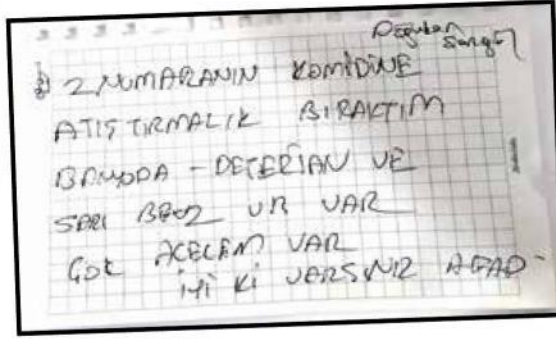 2 NUMARANIN KOMİDİNE
ATIŞTIRMALIK BIRAKTIM
BANYODA - DETERJAN VE
SARI BEZ VAR
ÇOK ACELEM VAR
İYİ Kİ VARSINIZ AFAD